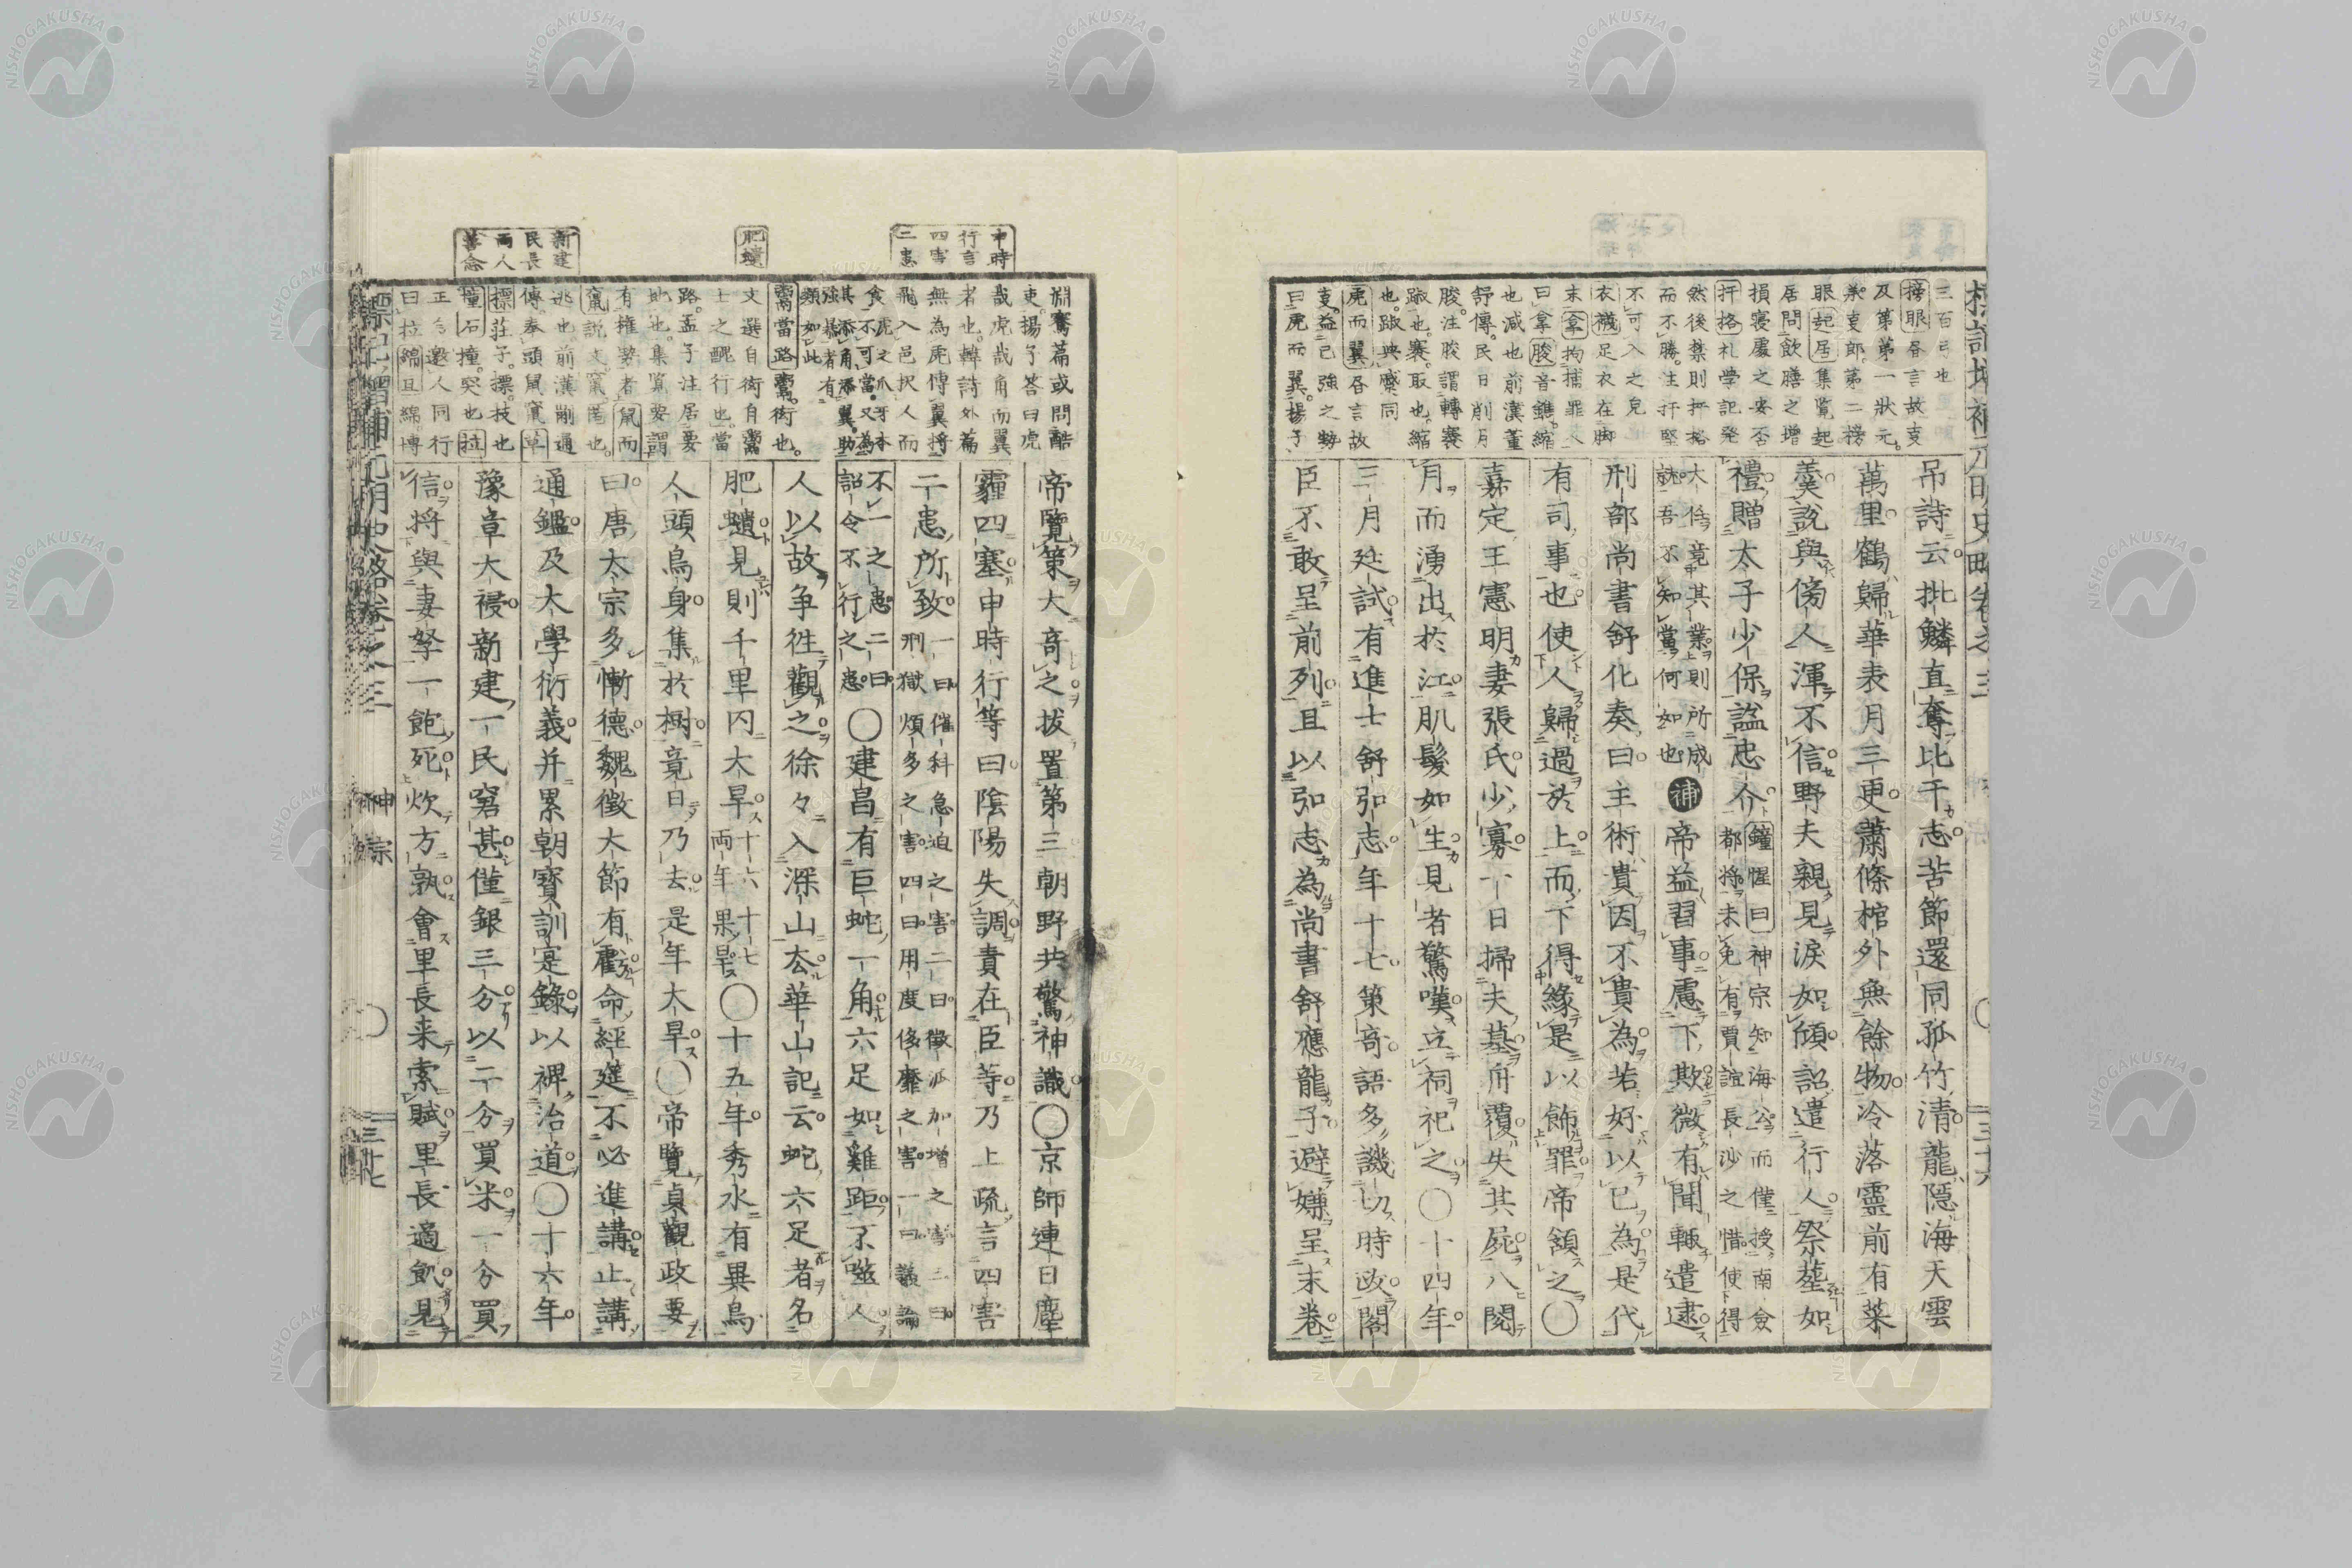 標記增補元明史略卷之三
三十六
三百弓也
榜眼居言故事
及第第一狀元
業事郎第二榜
眼起居集覽起
居問飲膳之增
損寢處之安否
扞格礼學記発
然後禁則扞格
而不勝注扞堅
不可入之皃
衣襪足衣在脚
末拿拘捕罪人
曰拿朘音鐫縮
也減也前漢董
舒傳民日削月
朘注朘謂轉褰
踧也褰取也縮
也踧與蹙同
虎而翼居言故
事益已強之勢
曰虎而翼揚子
吊詩云批鱗直奪比干志苦節還同孤竹清龍隱海天雲
萬里鶴歸華表月三更蕭條棺外無餘物冷落靈前有菜
羹說與傍人渾不信野夫親見淚如傾詔遣行人祭塟如
禮贈太子少保諡忠介鍾惺曰神宗知海公而僅授南僉
都將末免有賈誼長沙之惜使得
大伸竟其業則所成
就吾不知當何如也補帝益習事慮下欺微有聞輙遣逮
刑部尚書舒化奏曰主術貴因不貴為若好以已為是代
有司事也使人歸過於上而下得緣是以飾罪帝頷之〇
嘉定王憲明妻張氏少寡一日掃夫墓舟覆失其屍八閱
月而湧出於江肌髮如生見者驚嘆立祠祀之〇十四年
三月廷試有進士舒弘志年十七策奇語多譏切時政閣
臣不敢呈前列且以弘志為尚書舒應龍子避嫌呈末卷
申時
行言
四害
二患
肥𧔥
新建
民長
両人
善念
淵騫篇或問酷
吏揚子荅曰虎
哉虎哉角而翼
者也韓詩外篇
無為虎傳翼將
飛入邑択人而
食虎之爪牙本
不可當又為
其添角添翼助
強暴者有
類如此
鬻當路鬻衒也
文選自衒自鬻
士之醜行也當
路孟子注居要
地也集覧要謂
有権勢者鼠而
竄說文竄匿也
逃也前漢蒯通
傳奉頭鼠竄草
摽荘子摽技也
撞石撞突也拉
正言邀人同行
曰拉錦且綿博
帝覽策大奇之拔置第三朝野共驚神識〇京師連日塵
霾四塞申時行等曰陰陽失調責在臣等乃上疏言四害
二患所致一曰催科急迫之害二曰徵派加增之害三曰
刑獄煩多之害四曰用度侈靡之害一曰議論
不一之患二曰
詔令不行之患〇建昌有巨蛇一角六足如雞距不噬人
人以故争徃觀之徐々入深山厺華山記云蛇六足者名
肥𧔥見則千里内大旱十六十七
両年果旱〇十五年秀水有異鳥
人頭鳥身集於樹竟日乃去是年大旱〇帝覽貞觀政要
曰唐太宗多慚德魏徵大節有虧命經筵不必進講止講
通鑑及大學衍義并累朝寶訓寔錄以裨治道〇十六年
豫章大祲新建一民窘甚僅銀三分以二分買米一分買
信將與妻孥一飽死炊方孰會里長来索賦里長適飢見
標記增補元明史略卷之三
神宗
三十七